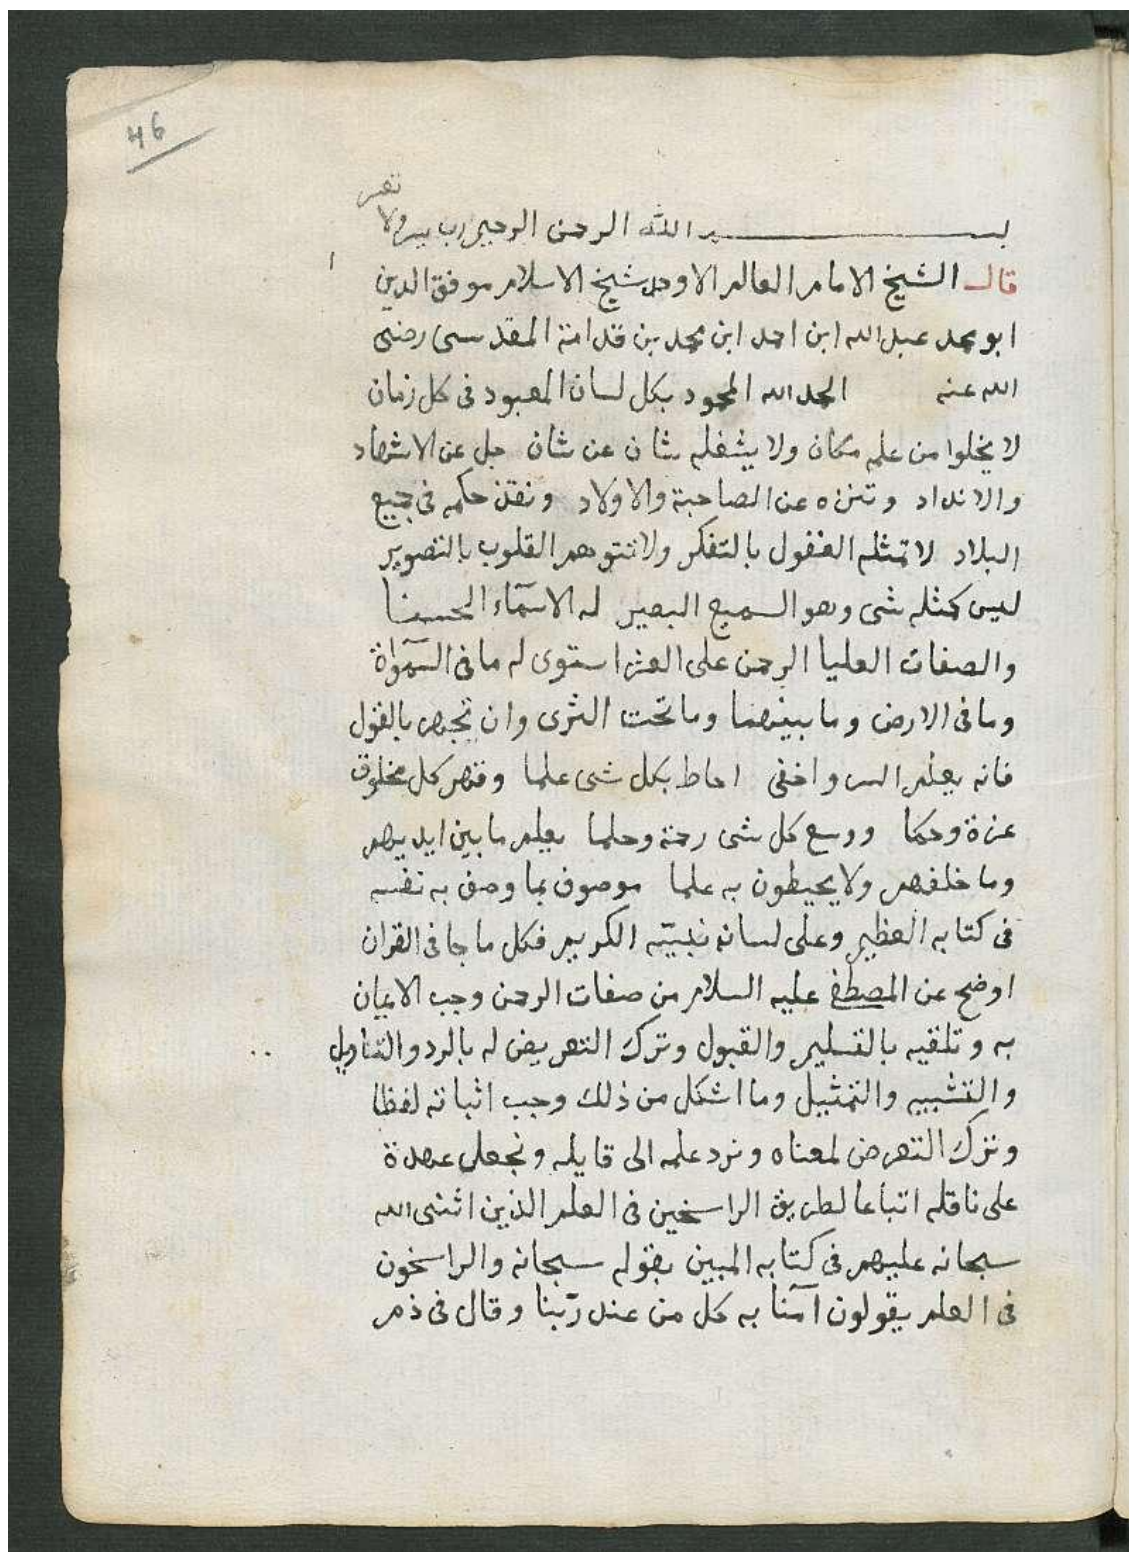 46
تعسر
بسم الله الرحمن الرحيم رب يسر ولا
قال الشيخ الامام العالم الاوحد شيخ الاسلام موفق الدين
ابو محمد عبد الله ابن احمد ابن محمد بن قدامة المقدسى رضى
الله عنه الحمد لله المحمود بكل لسان المعبود فى كل زمان
لا يخلوا من علمه مكان ولا يشغله شان عن شان جل عن الاشهاد
والانداد وتنزه عن الصاحبة والاولاد ونفذ حكمه فى جميع
البلاد لا تمثله العقول بالتفكر ولا تتوهم القلوب بالتصوير
ليس كمثله شى وهو السميع البصير له الاسمآء الحسنا
والصفات العليا الرحمن على العرش استوى له ما فى السمٓواة
وما فى الارض وما بينهما وما تحت الثرى وان تجهر بالقول
فانه يعلم السر واخفى احاط بكل شى علما وقهر كل مخلوق
عزة وحكما ووسع كل شى رحمة وحلما يعلم ما بين ايديهم
وما خلفهم ولا يحيطون به علما موصوف بما وصف به نفسه
فى كتابه العظيم وعلى لسان نبيّه الكريم فكل ما جا فى القران
اوضح عن المصطفى عليه السلام من صفات الرحمن وجب الايمان
به وتلقيه بالتسليم والقبول وترك التعريض له بالرد والتاويل
والتشبيه والتمثيل وما اشكل من ذلك وجب اثباته لفظا
ونترك التعرض لمعناه ونرد علمه الى قايله ونجعل عهدة
على ناقله اتباعا لطريق الراسخين فى العلم الذين اثنى الله
سبحانه عليهم فى كتابه المبين بقوله سبحانه والراسخون
فى العلم يقولون آمنا به كل من عند ربّنا وقال فى ذم